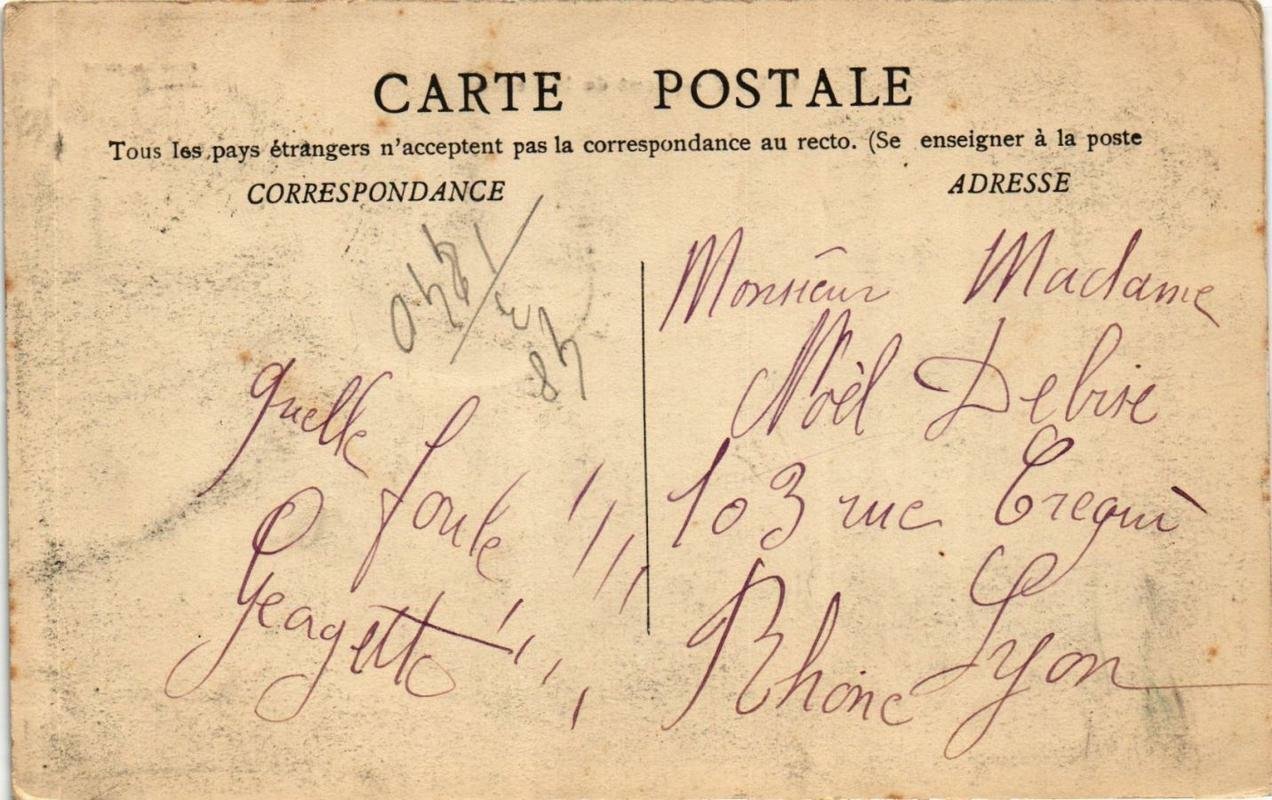 CARTE POSTALE
Tous les pays étrangers n'acceptent pas la correspondance au recto. (Se enseigner à la poste
CORRESPONDANCE
ADRESSE
quelle
foule !!!!
Geagette !!!!
Monsieur Madame
Noël Debise
103 rue Crequi
Rhone Lyon